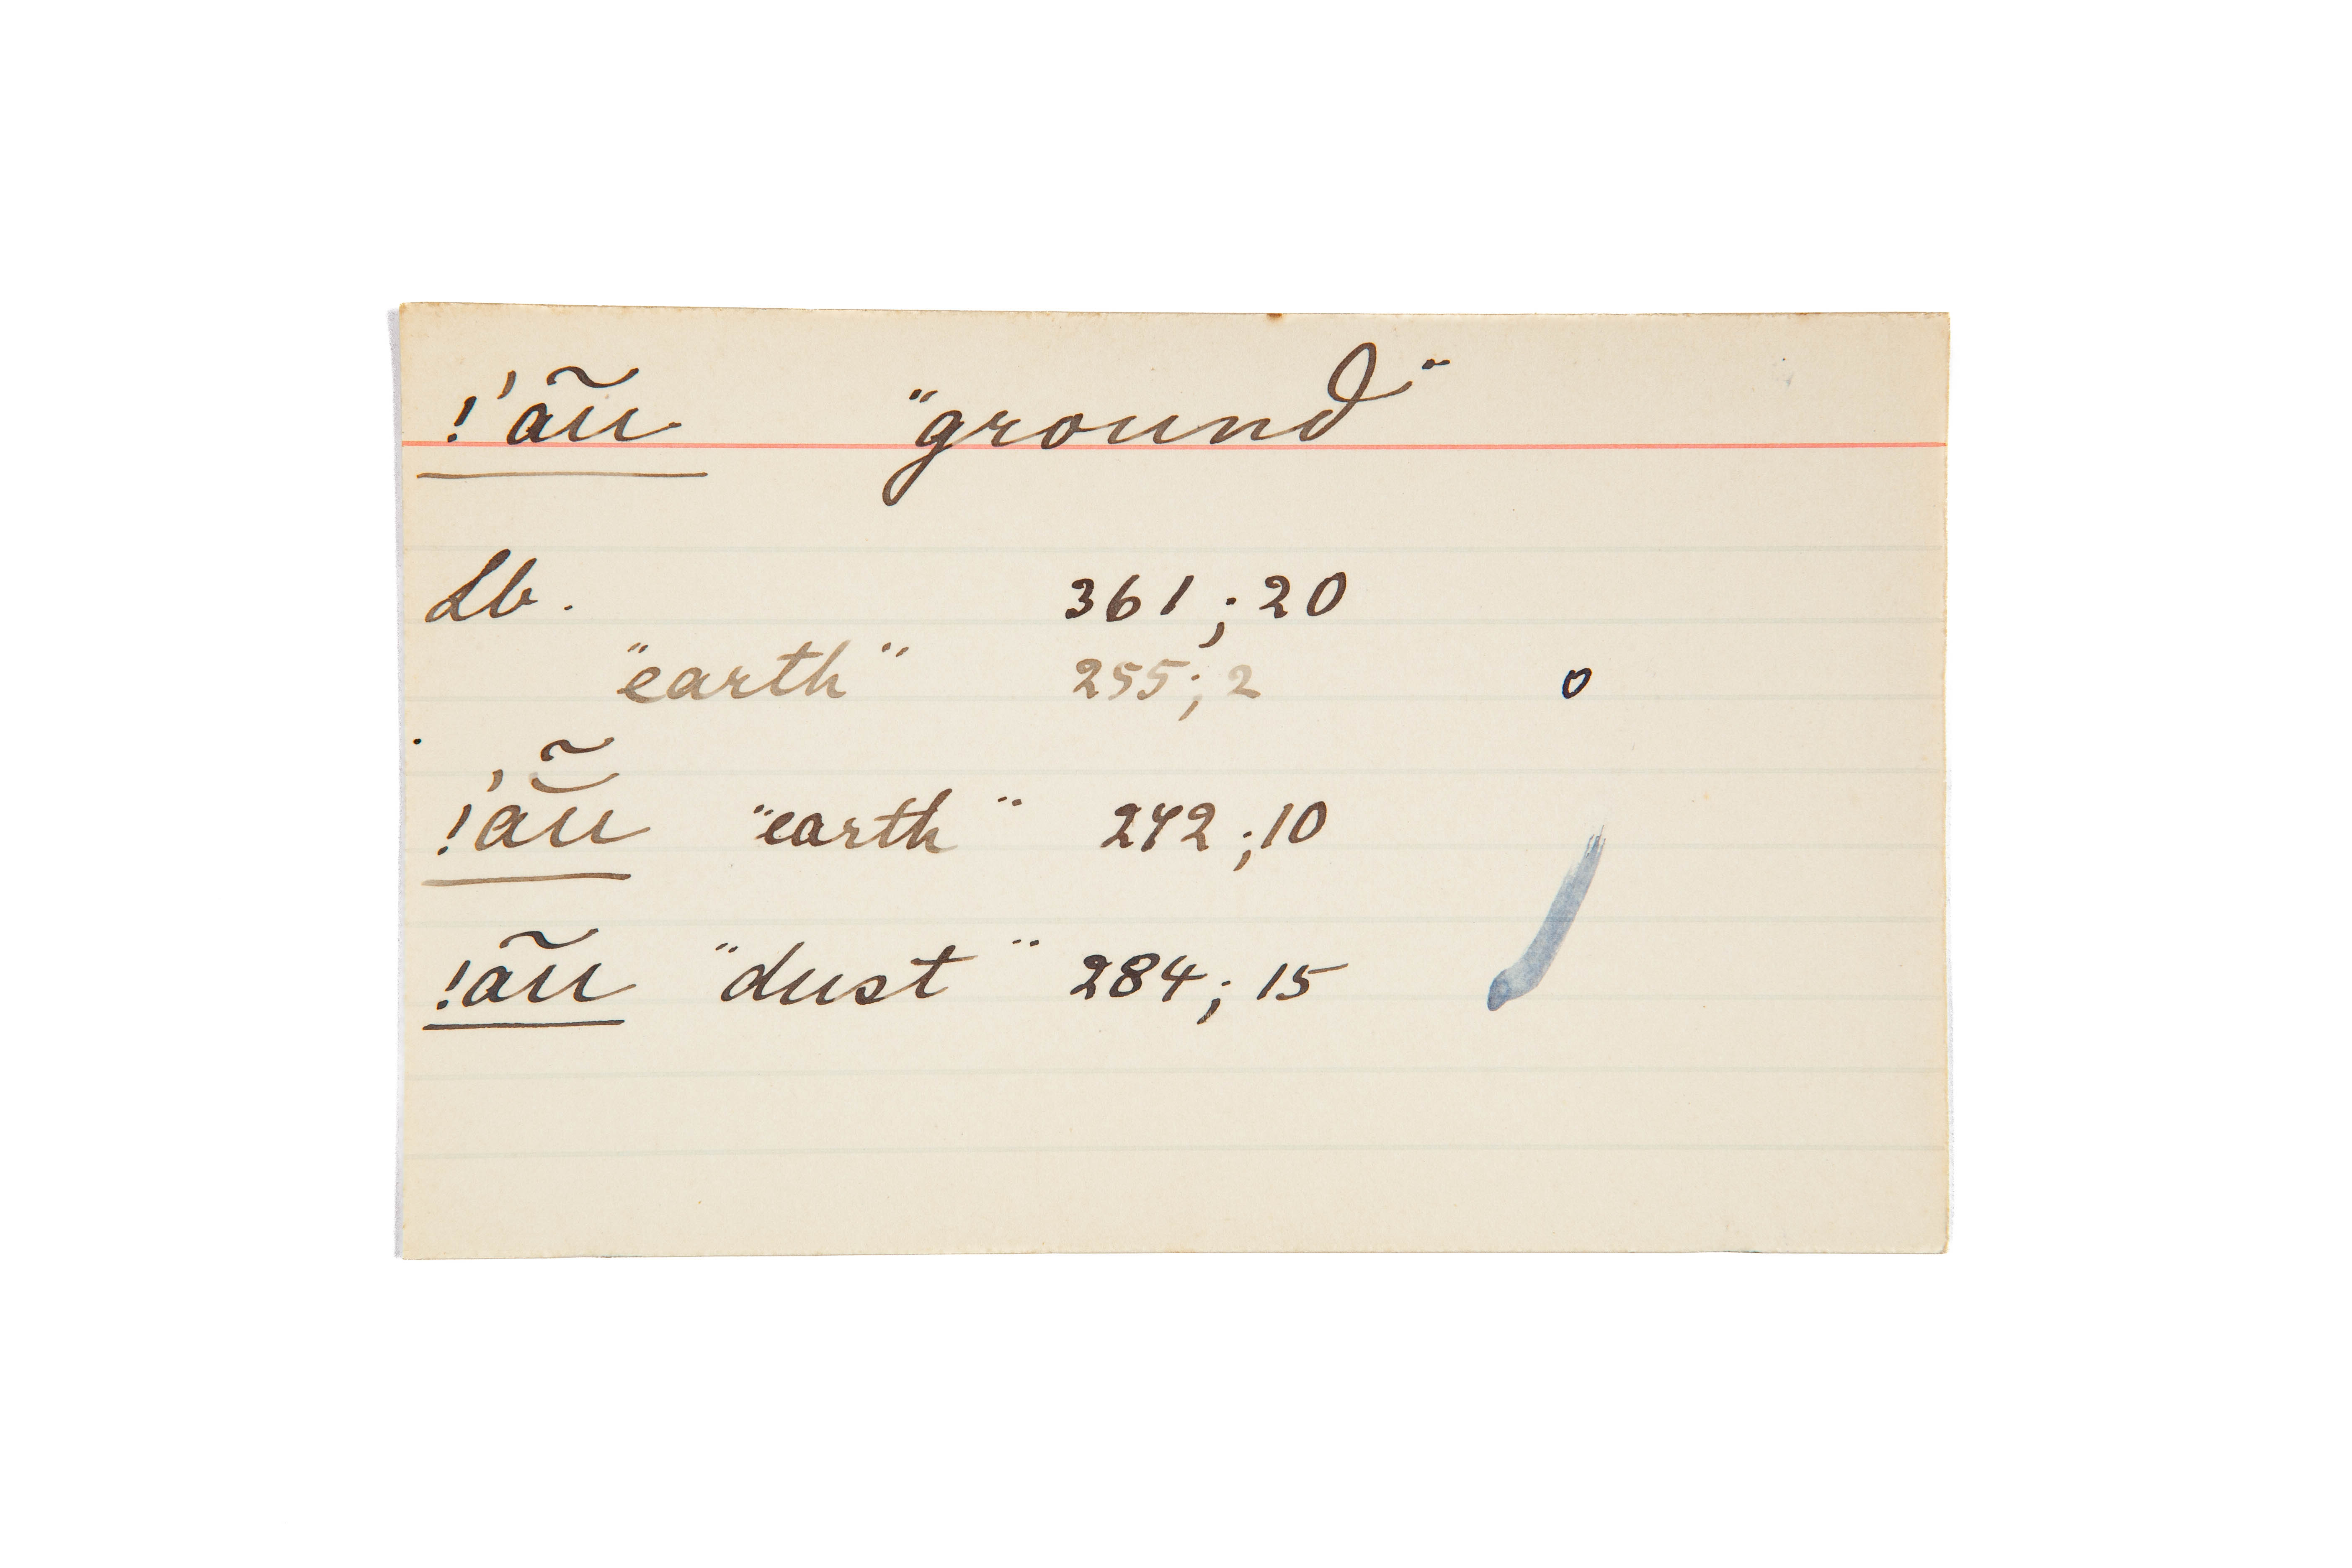 !'ãu "ground"
Lb. 361; 20
"earth" 255; 2 o
!'ãŭ "earth" 242; 10
!ãu "dust" 284; 15